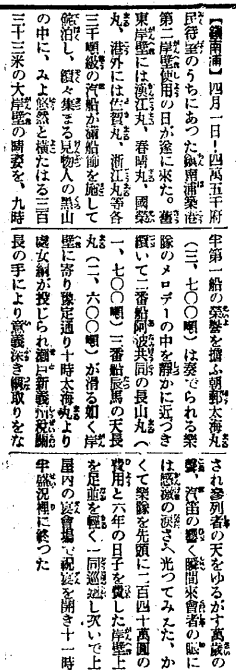 【鎭南浦】四月一日！四萬五千府
民待望のうちにあつた鎭南浦築港
第二岸壁使用の日が遂に來た。舊
東岸壁には漢江丸、春晴丸、國榮
丸、港外には佐賀丸、浙江丸等各
三千噸級の汽船が滿船飾を施して
碇泊し、續々集まる見物人の黑山
の中に、みよ悠然と横たはる三百
三十三米の大岸壁の晴姿を、九時
半第一船の榮譽を擔ふ朝郵太海丸
（三、七〇〇噸）は奏でられる樂
隊のメロデーの中を靜かに近づき
續いて二番船阿波共同の長山丸（
一、七〇〇噸）三番船辰馬の天長
丸（二、六〇〇噸）が滑る如く岸
壁に寄り豫定通り十時太海丸より
處女綱が投じられ瀨戸新義州稅關
長の手により意義深き綱取りをな
され參列者の天をゆるがす萬歲の
聲、汽笛の響く瞬間來會者の眼に
は感激の淚さへ光つてみえた、か
くて樂隊を先頭に二百四十萬圓の
費用と六年の日子を費した岸壁上
を足並を輕く一同巡廻し次いで上
屋內の宴會場で祝宴を開き十一時
半盛況裡に終つた